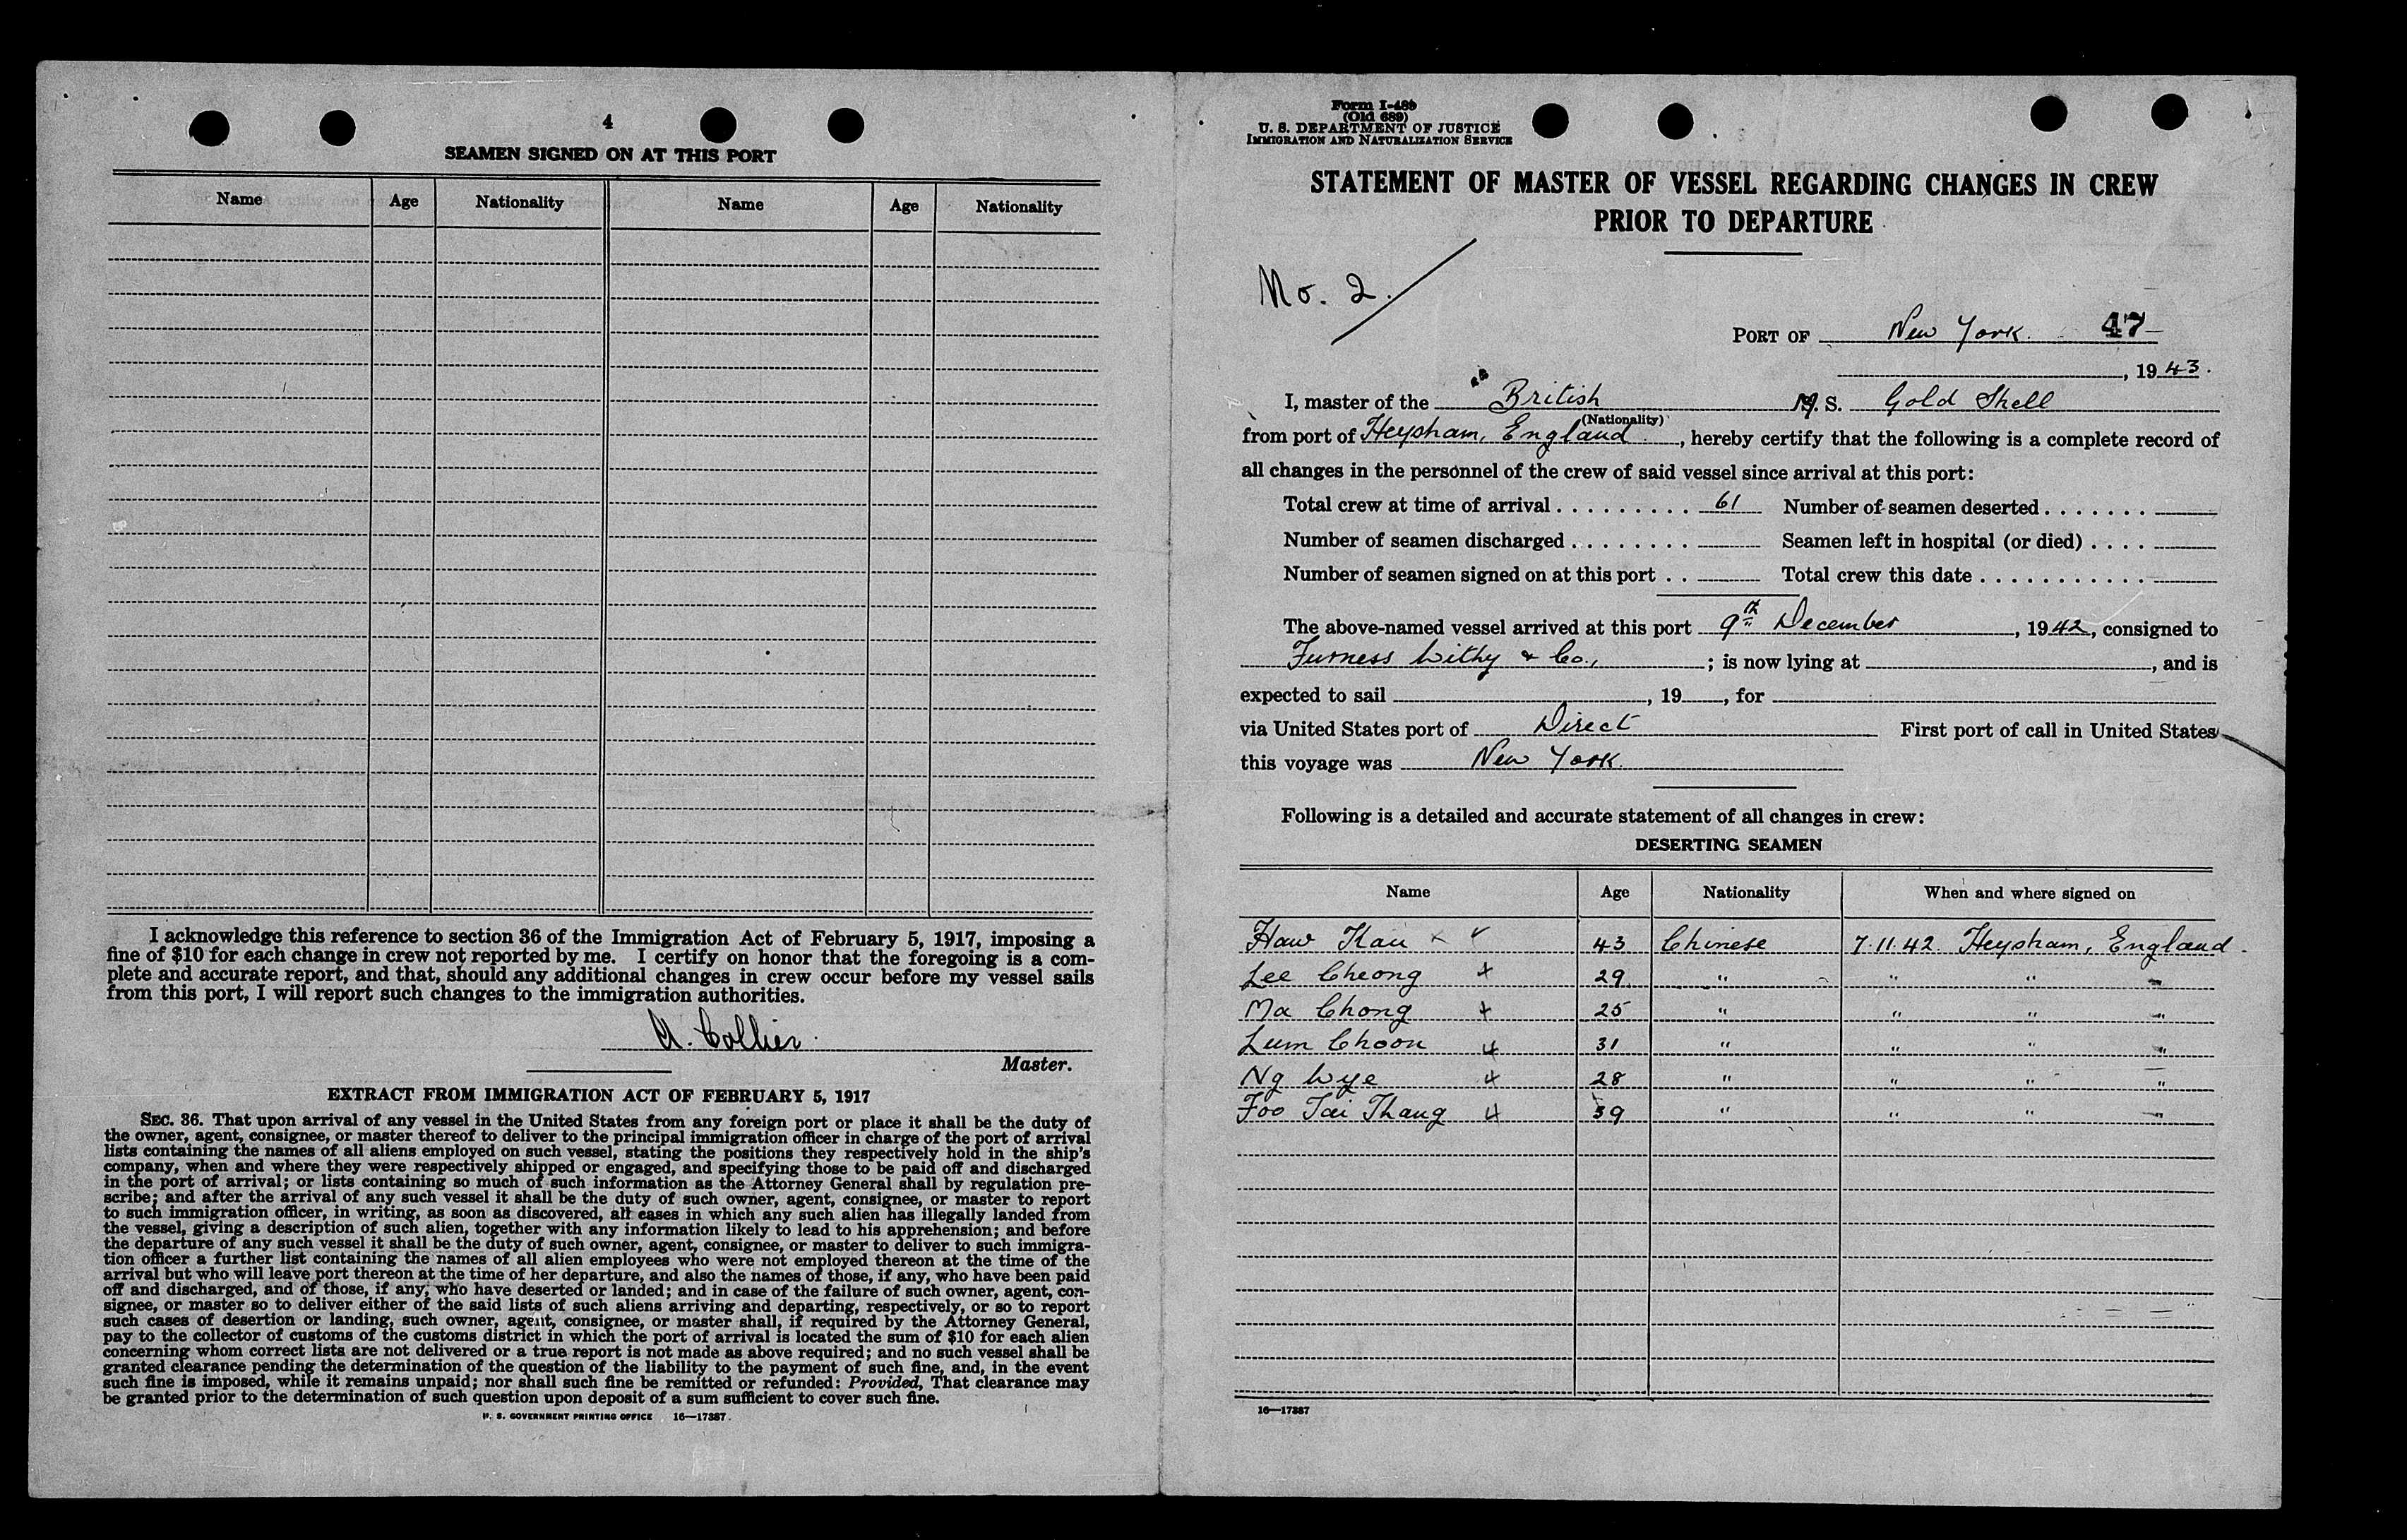 4
SEAMEN SIGNED ON AT THIS PORT
Name Age Nationality Name Age Nationality
I acknowledge this reference to section 36 of the Immigration Act of February 5, 1917, imposing a
fine of $10 for each change in crew not reported by me. I certify on honor that the foregoing is a com-
plete and accurate report, and that, should any additional changes in crew occur before my vessel sails
from this port, I will report such changes to the immigration authorities.
A. Collier.
Master.
EXTRACT FROM IMMIGRATION ACT OF FEBRUARY 5, 1917
SEC. 36. That upon arrival of any vessel in the United States from any foreign port or place it shall be the duty of
the owner, agent, consignee, or master thereof to deliver to the principal immigration officer in charge of the port of arrival
lists containing the names of all aliens employed on such vessel, stating the positions they respectively hold in the ship's
company, when and where they were respectively shipped or engaged, and specifying those to be paid off and discharged
in the port of arrival; or lists containing so much of such information as the Attorney General shall by regulation pre-
scribe; and after the arrival of any such vessel it shall be the duty of such owner, agent, consignee, or master to report
to such immigration officer, in writing, as soon as discovered, all cases in which any such alien has illegally landed from
the vessel, giving a description of such alien, together with any information likely to lead to his apprehension; and before
the departure of any such vessel it shall be the duty of such owner, agent, consignee, or master to deliver to such immigra-
tion officer a further list containing the names of all alien employees who were not employed thereon at the time of the
arrival but who will leave port thereon at the time of her departure, and also the names of those, if any, who have been paid
off and discharged, and of those, if any, who have deserted or landed; and in case of the failure of such owner, agent, con-
signee, or master so to deliver either of the said lists of such aliens arriving and departing, respectively, or so to report
such cases of desertion or landing, such owner, agent, consignee, or master shall, if required by the Attorney General,
pay to the collector of customs of the customs district in which the port of arrival is located the sum of $10 for each alien
concerning whom correct lists are not delivered or a true report is not made as above required; and no such vessel shall be
granted clearance pending the determination of the question of the liability to the payment of such fine, and, in the event
such fine is imposed, while it remains unpaid; nor shall such fine be remitted or refunded: Provided, That clearance may
be granted prior to the determination of such question upon deposit of a sum sufficient to cover such fine.
U. S. GOVERNMENT PRINTING OFFICE 16—17387
Form I-489
(Old 689)
U. S. DEPARTMENT OF JUSTICE
IMMIGRATION AND NATURALIZATION SERVICE
STATEMENT OF MASTER OF VESSEL REGARDING CHANGES IN CREW
PRIOR TO DEPARTURE
No. 2.
PORT OF New York. 47
, 1943.
I, master of the British M. S. Gold Shell
(Nationality)
from port of Heysham, England, hereby certify that the following is a complete record of
all changes in the personnel of the crew of said vessel since arrival at this port:
Total crew at time of arrival 61 Number of seamen deserted
Number of seamen discharged Seamen left in hospital (or died)
Number of seamen signed on at this port Total crew this date
The above-named vessel arrived at this port 9th December, 1942, consigned to
Furness Withy & Co., ; is now lying at , and is
expected to sail , 19 , for
via United States port of Direct First port of call in United States
this voyage was New York.
Following is a detailed and accurate statement of all changes in crew:
DESERTING SEAMEN
Name Age Nationality When and where signed on
Haw Kau 43 Chinese 7.11.42. Heysham, England.
Lee Cheong 29 " " " "
Ma Chong 25 " " " "
Lum Choon 31 " " " "
Ng Wye 28 " " " "
Foo Tai Thang 39 " " " "
16—17387